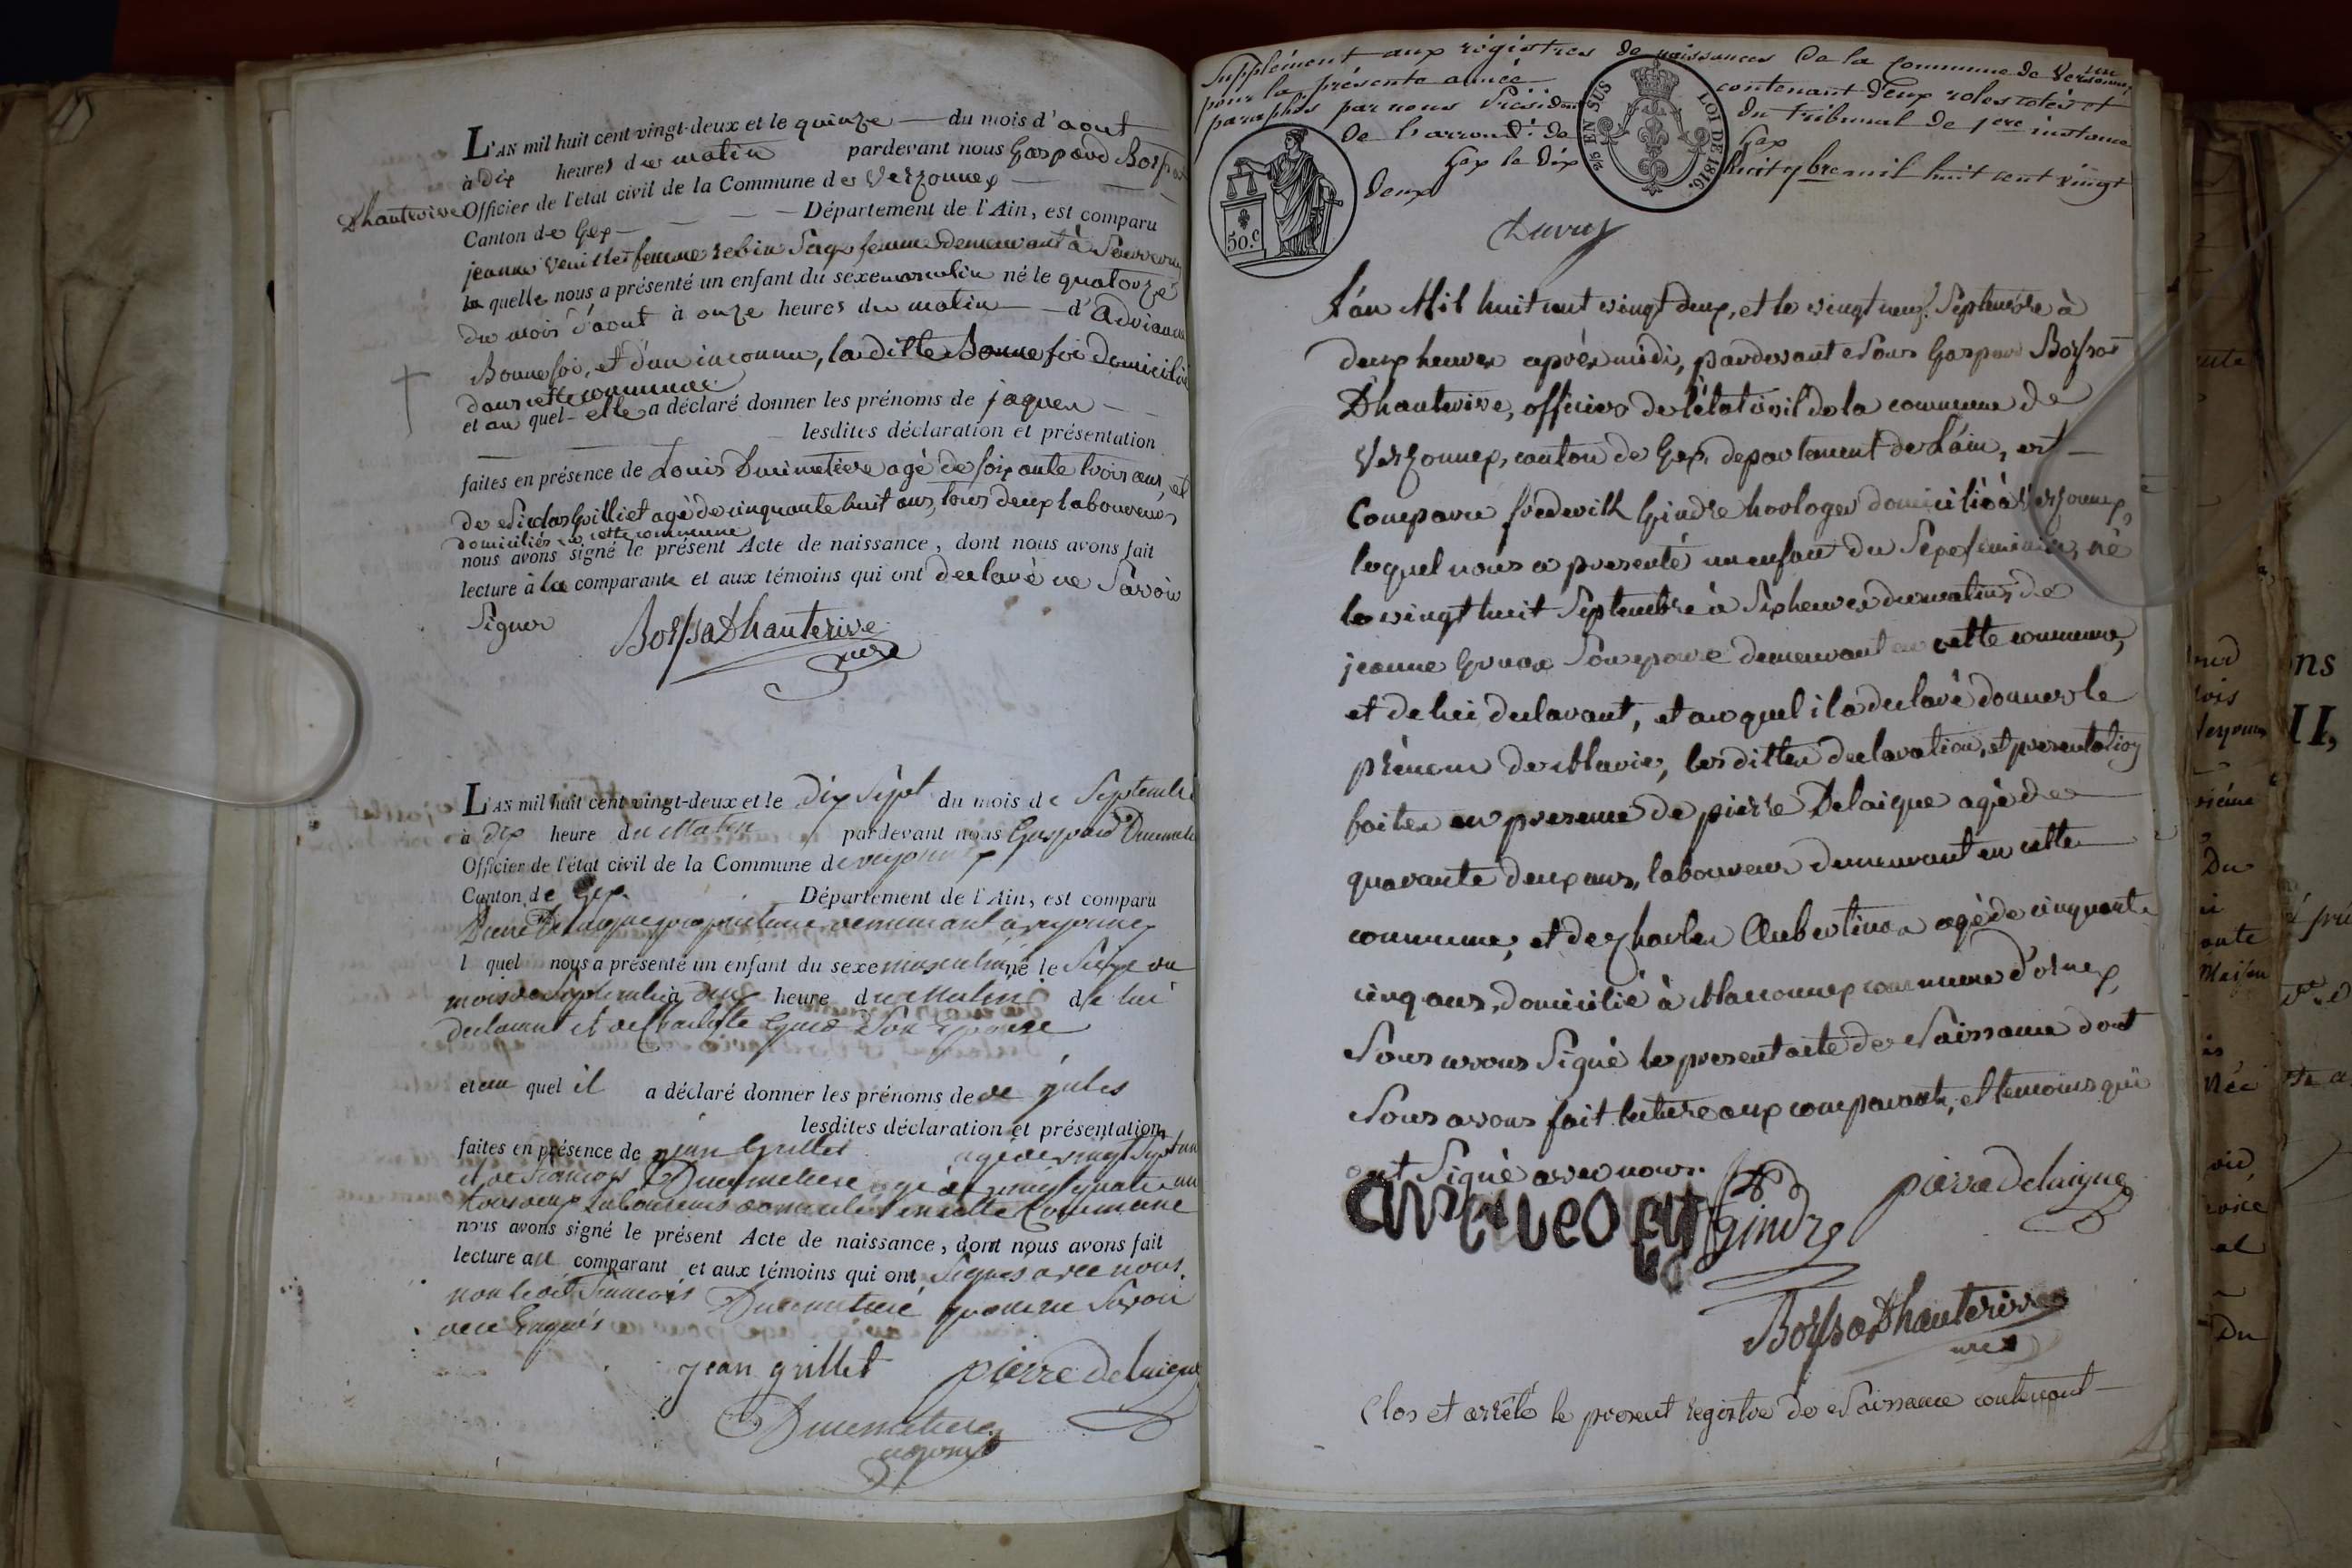 L'AN mil huit cent vingt-deux et le quinze du mois d'aout
à dix heures du matin pardevant nous Gaspard Borssat
Dhauterive Officier de l'état civil de la Commune de Verzonnex
Canton de Gex Département de l'Ain, est comparu
jeanne femme Sage femme demeurant à
la quelle nous a présenté un enfant du sexe masculin né le quatorze
du mois d'aout à onze heures du matin d'Adrianne
Bonnefoi, et d'un inconnu, la ditte Bonnefoi domiciliée
dans cette commune
et au quel elle a déclaré donner les prénoms de jaques
lesdites déclaration et présentation
faites en présence de Louis Ducimetière agé de soixante trois ans, et
de Nicolas Grilliet agé de cinquante huit ans, tous deux laboureurs
domiciliés en cette commune
nous avons signé le présent Acte de naissance, dont nous avons fait
lecture à la comparante et aux témoins qui ont declaré ne Savoir
Signer
Borssat Dhauterive
mre
L'AN mil huit cent vingt-deux et le dix Sept du mois de Septembre
à dix heure du Matin pardevant nous Gaspard
Officier de l'état civil de la Commune de
Canton de Gex Département de l'Ain, est comparu
Pierre Delaigue proprietaire demeurant a
l quel nous a présenté un enfant du sexe masculin né le Seize du
mois de Septembre à deux heure du Matin de lui
declarant et de Charlotte Son Epouse
et au quel il a déclaré donner les prénoms de de jules
lesdites déclaration et présentation
faites en présence de jean Grillet agé de vingt Sept ans
et de francois Ducimetiere agé de vingt quatre ans
tous deux Laboureurs domiciliés en cette Commune
nous avons signé le présent Acte de naissance, dont nous avons fait
lecture au comparant et aux témoins qui ont Signés avec nous
non ledit francois Ducimetiere pour ne Savoir
de ce Enquis
jean grillet pierre delaigue
Ducimetiere
Supplément aux régistres de naissances de la Commune de Versonnex
pour la présente année contenant deux roles cotés et
paraphés par nous Président du tribunal de 1ere instance
de l'arrondt. de Gex
Gex le dix huit 7bre mil huit cent vingt
deux
2/5 EN SUS
LOI DE 1816.
50.c
L'an Mil huit cent vingt deux, et le vingt neuf Septembre à
deux heures après midi, pardevant Nous Gaspard Borssat
Dhauterive, officier de l'état civil de la commune de
Verzonnex, canton de Gex, departement de L'ain, est
Comparu frederick Gindre horloger domicilié à Verzonnex,
lequel nous a presenté un enfant du Sexe feminin, né
le vingt huit Septembre à Six heures du matin, de
jeanne Son epouse demeurant en cette commune,
et de lui declarant, et au quel il a declaré donner le
prénom de Marie, les dittes declaration, et presentation
faites en presence de pierre Delaigue agé de
quarante deux ans, laboureur demeurant en cette
commune, et de Charles Aubertin agé de cinquante
cinq ans, domicilié à Maconnex commune d'ornex,
Nous avons Signé le present acte de Naissance dont
Nous avons fait lecture aux comparants, et temoins qui
ont Signé avec nous.
gindre pierre Delaigue
Borssat Dhauterive
mre
Clos et arrêté le present registre de Naissance contenant